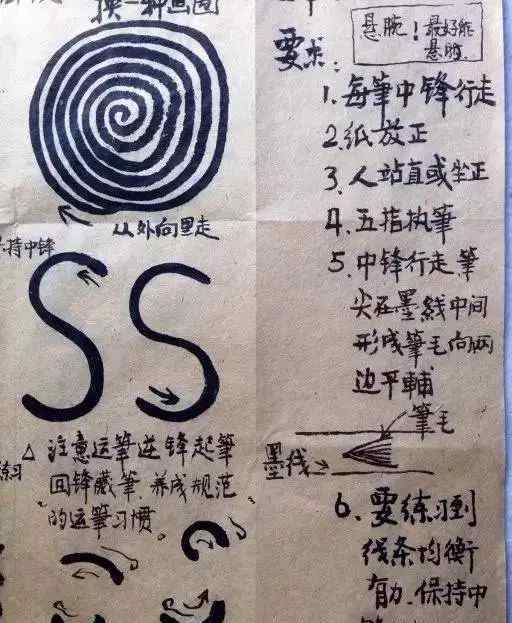 换一种画圈
从外向里走
持中锋
SS
△ 注意运筆逆锋起筆
回锋藏筆.养成规范
的运筆习惯。
练习
悬腕！最好能
悬肘.
要求:
1. 每筆中锋行走
2. 纸放正
3. 人站直或坐正
4. 五指执筆
5. 中锋行走.筆
尖在墨线中间
形成筆毛向两
边平輔
筆毛
墨线
6. 要练习到
线条均衡
有力.保持中